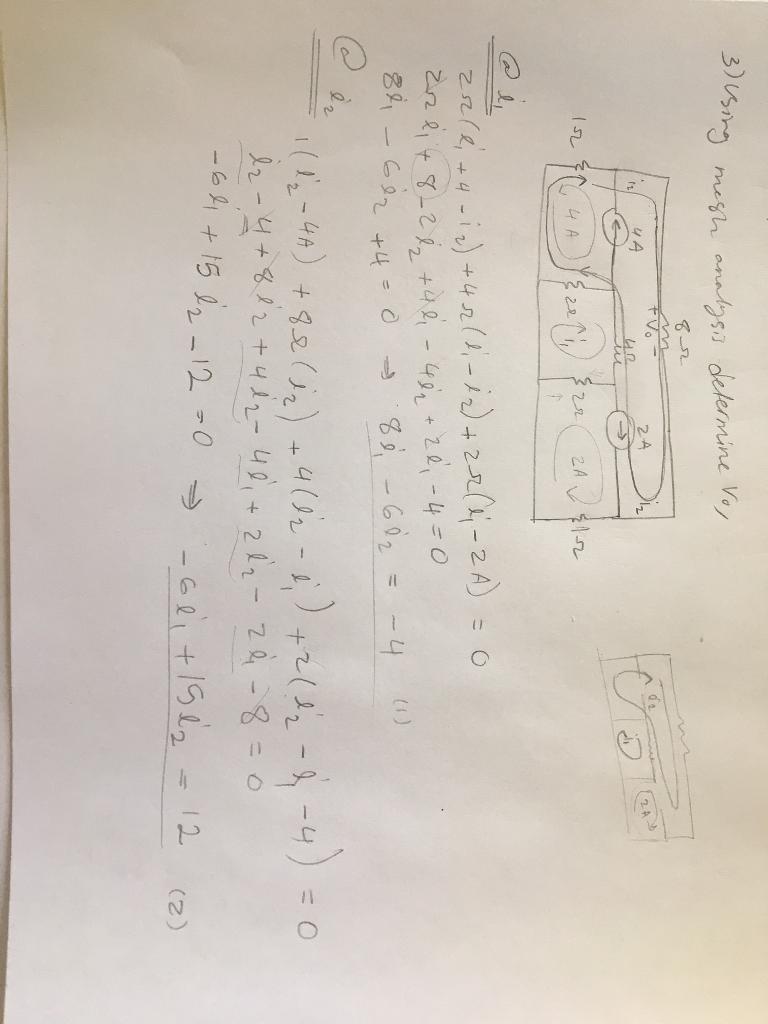 3) Using mesh analysis determine Vo,
8Ω
+ Vo -
i2
4A
4Ω
2A
i2
1Ω
4A
2Ω
i1
2Ω
2A
1Ω
i2
i1
2A
@ i1
2Ω(i1 + 4 - i2) + 4Ω(i1 - i2) + 2Ω(i1 - 2A) = 0
2Ω i1 + 8 - 2i2 + 4i1 - 4i2 + 2i1 - 4 = 0
8i1 - 6i2 + 4 = 0 → 8i1 - 6i2 = -4 (1)
@ i2
1(i2 - 4A) + 8Ω(i2) + 4(i2 - i1) + 2(i2 - i1 - 4) = 0
i2 - 4 + 8i2 + 4i2 - 4i1 + 2i2 - 2i1 - 8 = 0
-6i1 + 15i2 - 12 = 0 → -6i1 + 15i2 = 12 (2)